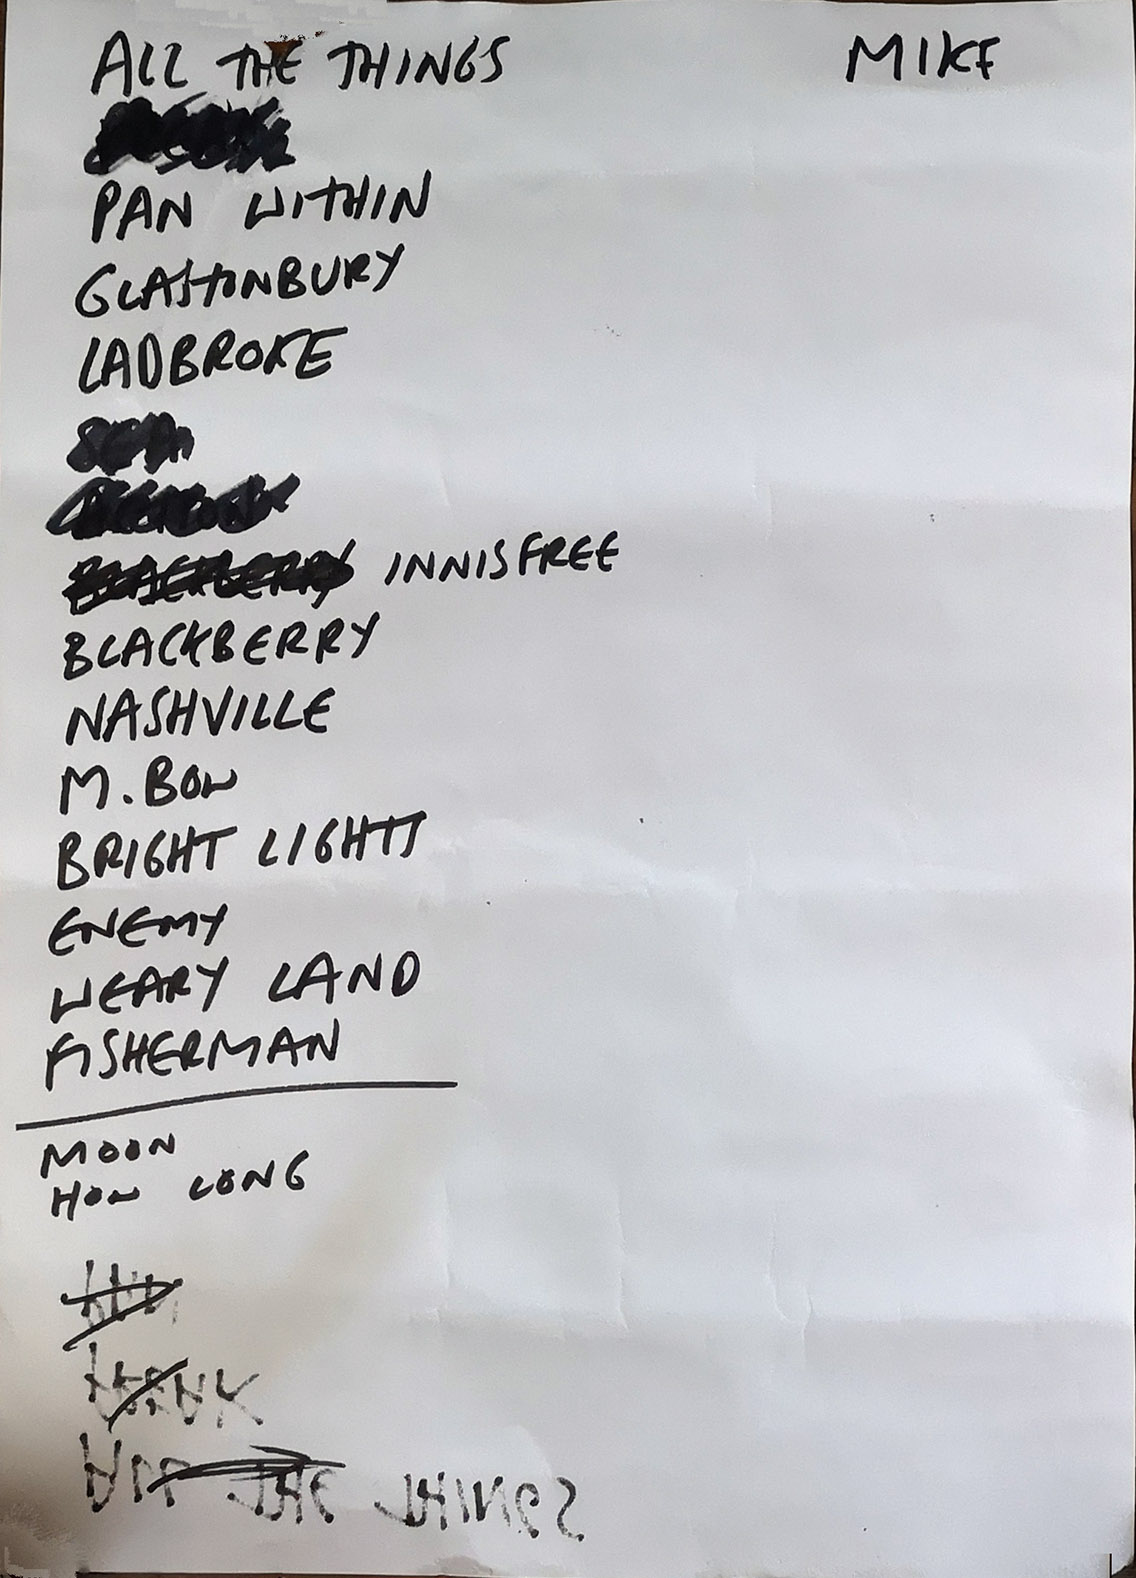 ALL THE THINGS MIKE
PAN WITHIN
GLASTONBURY
LADBROKE
BLACKBERRY INNISFREE
BLACKBERRY
NASHVILLE
M. BOW
BRIGHT LIGHTS
ENEMY
WEARY LAND
FISHERMAN
MOON
HOW LONG
THE THINGS